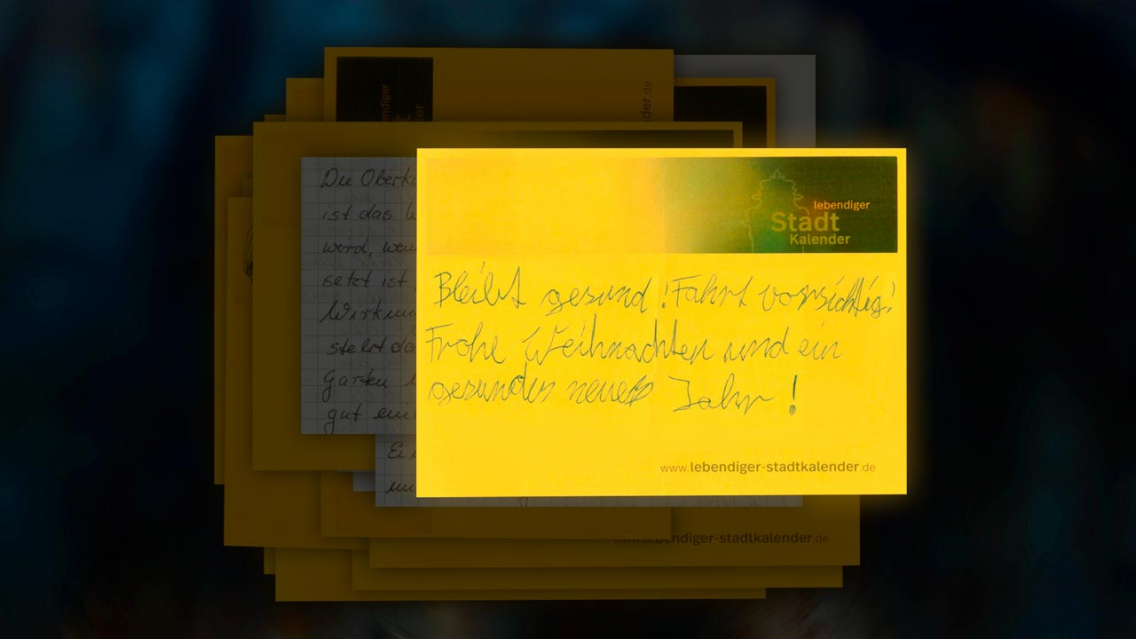 lebendiger
Stadt
Kalender
Bleibt gesund! Fahrt vorsichtig!
Frohe Weihnachten und ein
gesundes neues Jahr!
www.lebendiger-stadtkalender.de
Die Oberk
ist das
werd, wen
setzt ist
Wirkun
steht da
Garten
gut ein
Ei
www.lebendiger-stadtkalender.de